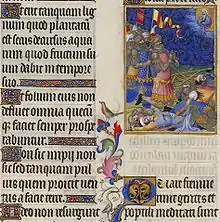 Et erit tanquam lig
num quod plantatū
est secus decursus aqua
rum quod fructum su
um dabit in tempore
suo
Et folium eius non
defluet omnia quecū
q; faciet semper prospe
rabuntur
Non sic impij non
sic sed tanquam pul
uis quem proicit uen
tus a facie terre
Ideo non resurgunt
Quare fremu
erunt gentes et
populi meditati sunt